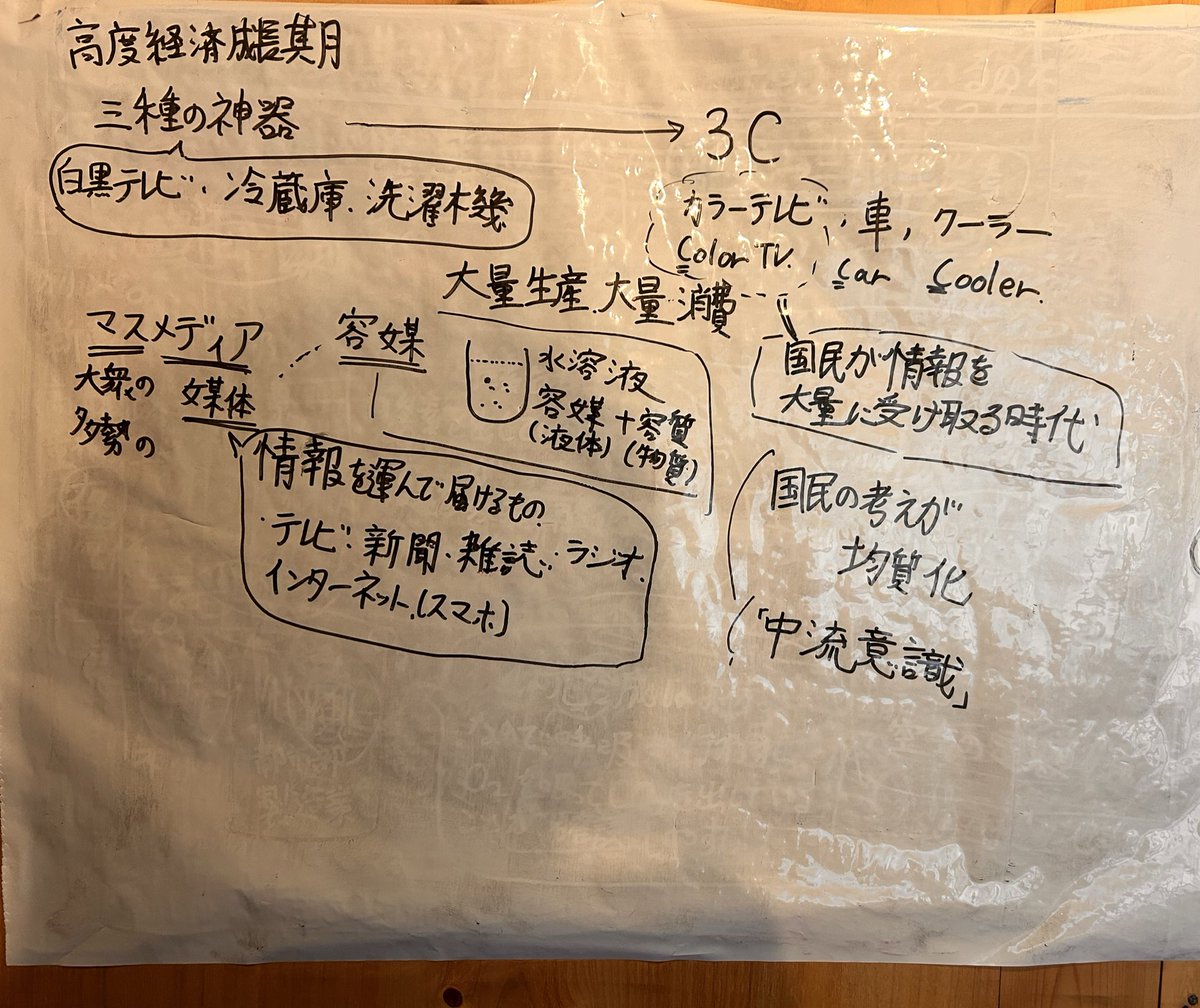 高度経済成長期
三種の神器 → 3C
白黒テレビ・冷蔵庫・洗濯機
カラーテレビ、車、クーラー
Color TV. Car Cooler.
大量生産、大量消費
マスメディア
大衆の
多勢の
媒体
容媒
水溶液
容媒+容質
(液体) (物質)
情報を運んで届けるもの
・テレビ・新聞・雑読・ラジオ・
インターネット(スマホ)
国民が情報を
大量に受け取る時代
国民の考えが
均質化
「中流意識」